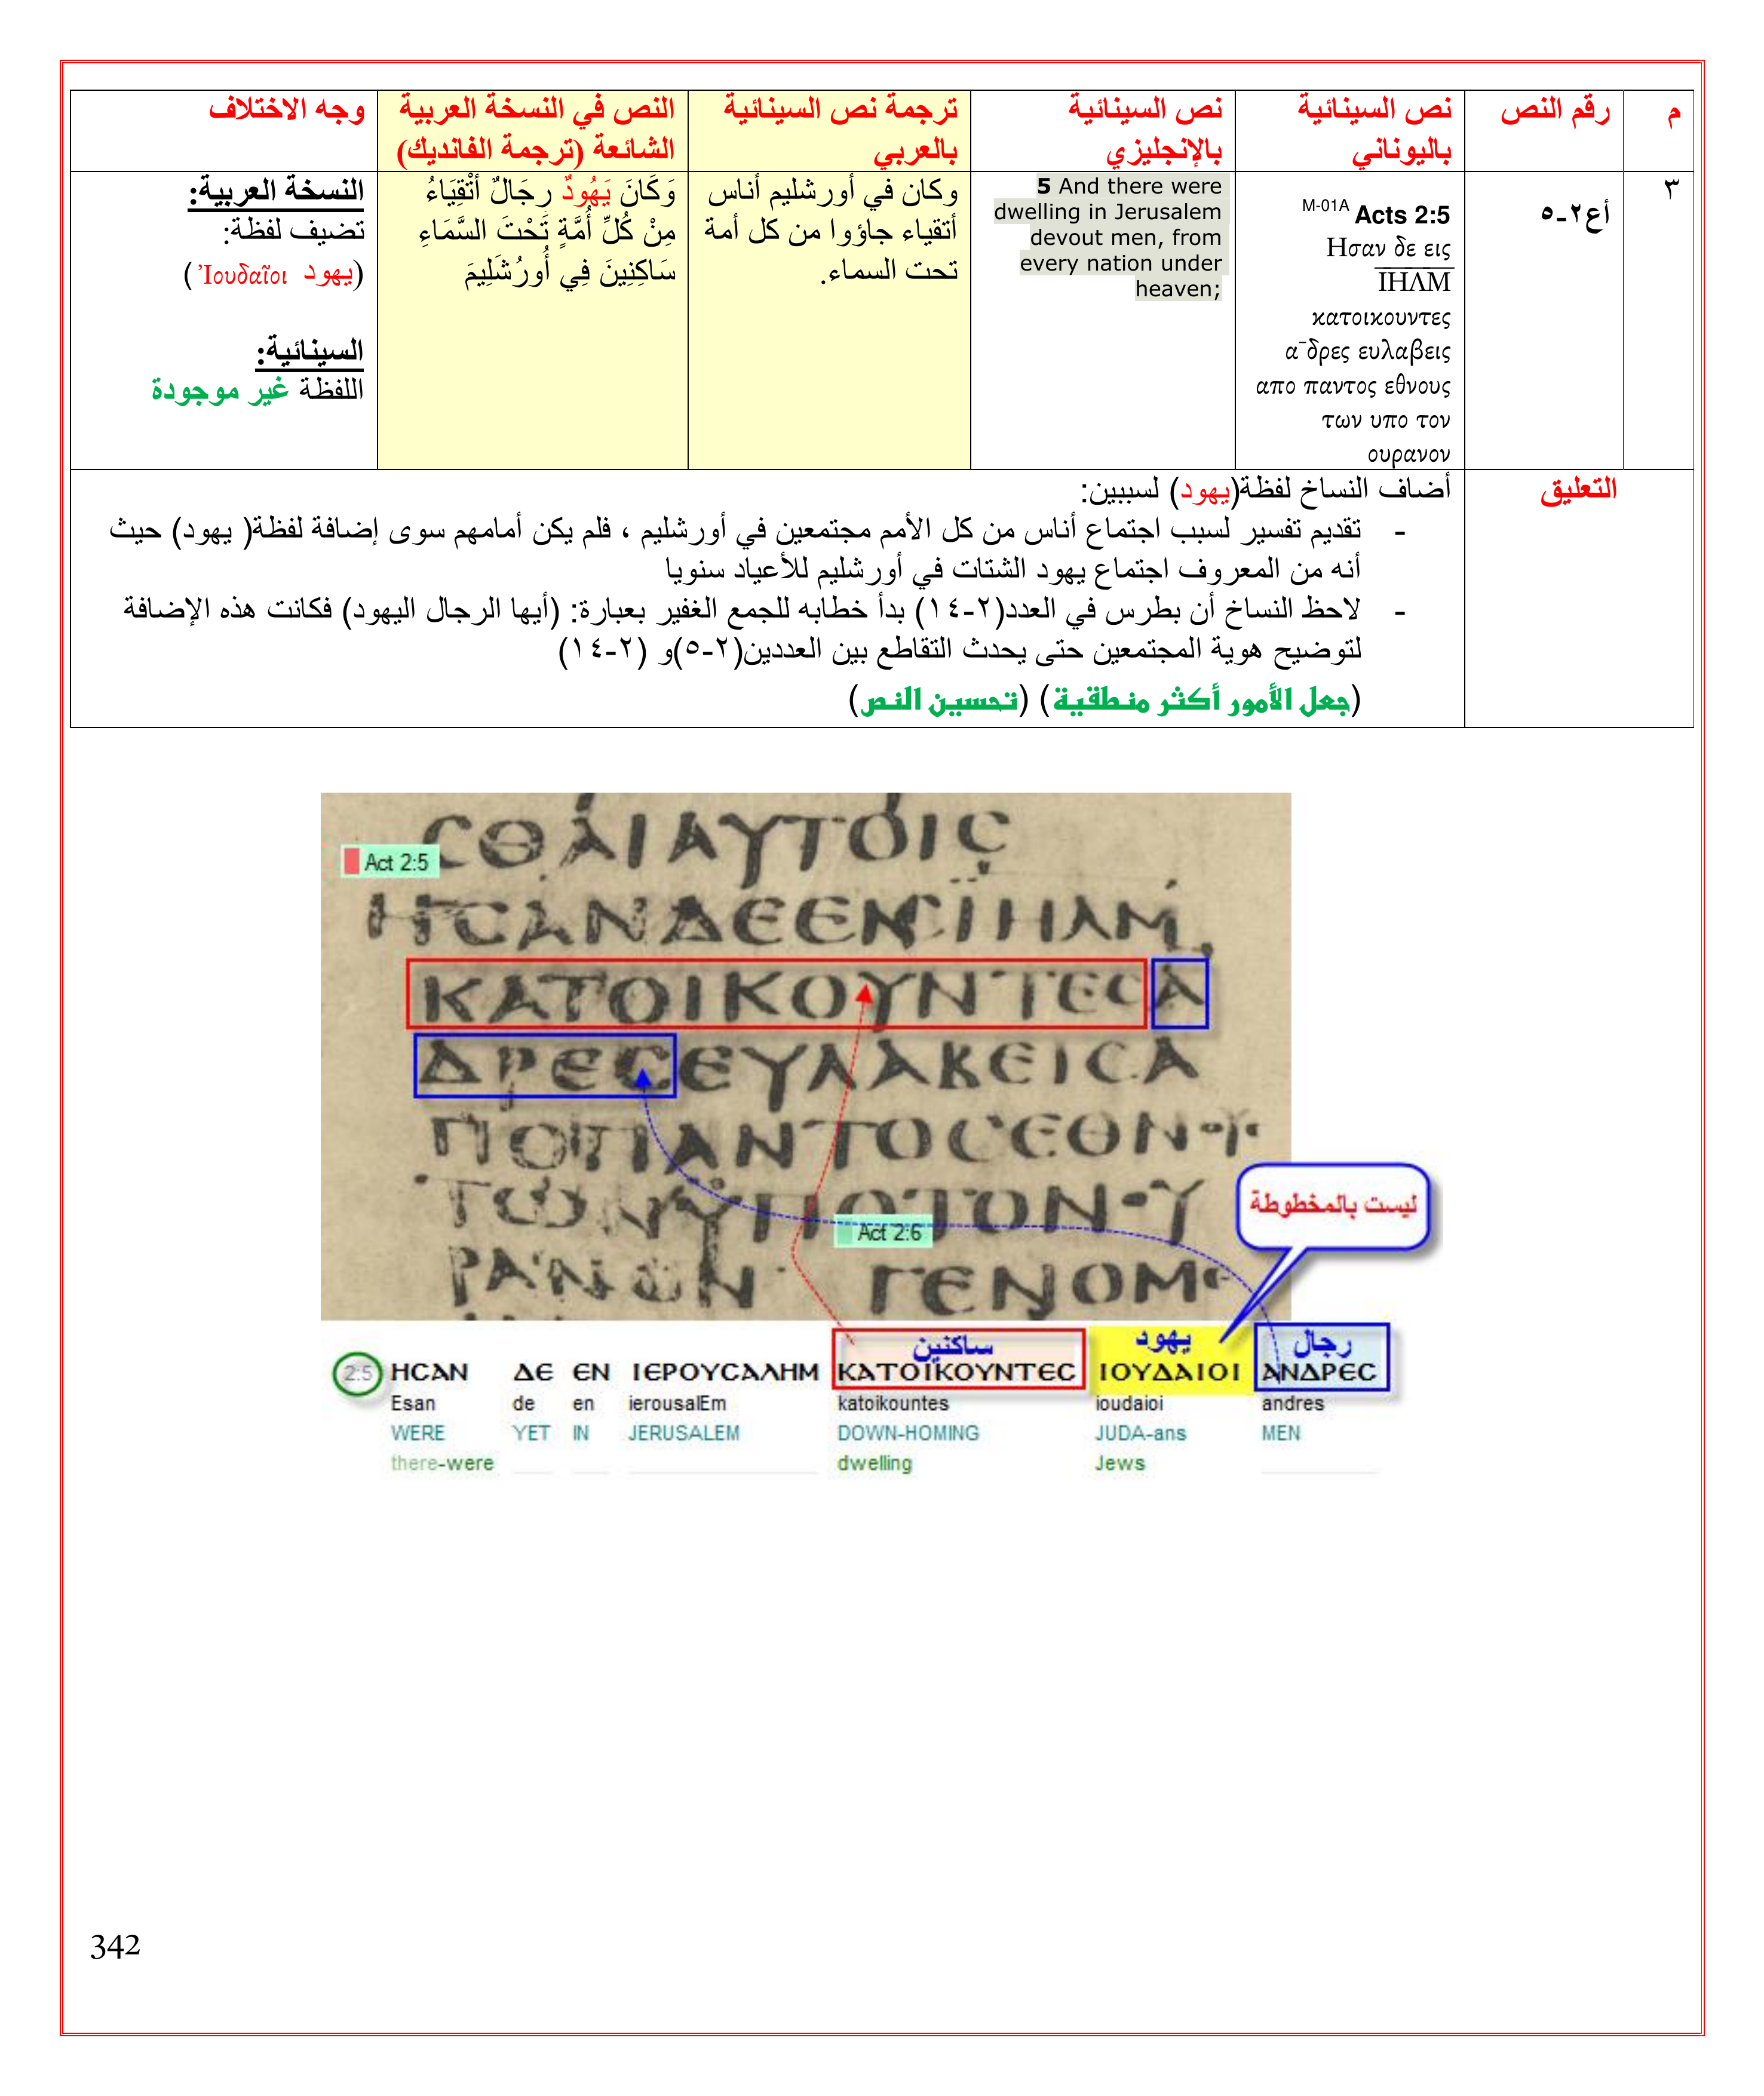 م
رقم النص
نص السينائية
باليوناني
نص السينائية
بالإنجليزي
ترجمة نص السينائية
بالعربي
النص في النسخة العربية
الشائعة (ترجمة الفانديك)
وجه الاختلاف
٣
أع٢-٥
M-01A Acts 2:5
Ησαν δε εις
ΙΗΛΜ
κατοικουντες
α¯δρες ευλαβεις
απο παντος εθνους
των υπο τον
ουρανον
5 And there were
dwelling in Jerusalem
devout men, from
every nation under
heaven;
وكان في أورشليم أناس
أتقياء جاؤوا من كل أمة
تحت السماء.
وَكَانَ يَهُودٌ رِجَالٌ أَتْقِيَاءُ
مِنْ كُلِّ أُمَّةٍ تَحْتَ السَّمَاءِ
سَاكِنِينَ فِي أُورُشَلِيمَ
النسخة العربية:
تضيف لفظة:
(يهود Ἰουδαῖοι)
السينائية:
اللفظة غير موجودة
التعليق
أضاف النساخ لفظة(يهود) لسببين:
- تقديم تفسير لسبب اجتماع أناس من كل الأمم مجتمعين في أورشليم ، فلم يكن أمامهم سوى إضافة لفظة( يهود) حيث
أنه من المعروف اجتماع يهود الشتات في أورشليم للأعياد سنويا
- لاحظ النساخ أن بطرس في العدد(٢-١٤) بدأ خطابه للجمع الغفير بعبارة: (أيها الرجال اليهود) فكانت هذه الإضافة
لتوضيح هوية المجتمعين حتى يحدث التقاطع بين العددين(٢-٥)و (٢-١٤)
(جعل الأمور أكثر منطقية) (تحسين النص)
ϹΘΑΙΑΥΤΟΙϹ
Act 2:5
ΗϹΑΝΔΕ ΪΗΛΜ
ΚΑΤΟΙΚΟΥΝΤΕϹΑ
ΔΡΕϹΕΥΛΑΒΕΙϹΑ
ΠΟΠΑΝΤΟϹΕΘΝΟΥ
ΤΩΝΥΠΟΤΟΝΟΥ
Act 2:6
ΓΕΝΟΜΕ
ليست بالمخطوطة
ساكنين
يهود
رجال
2:5 ΗϹΑΝ ΔΕ ΕΝ ΙΕΡΟΥϹΑΛΗΜ ΚΑΤΟΙΚΟΥΝΤΕϹ ΙΟΥΔΑΙΟΙ ΑΝΔΡΕϹ
Esan de en ierousalEm katoikountes ioudaioi andres
WERE YET IN JERUSALEM DOWN-HOMING JUDA-ans MEN
there-were dwelling Jews
342